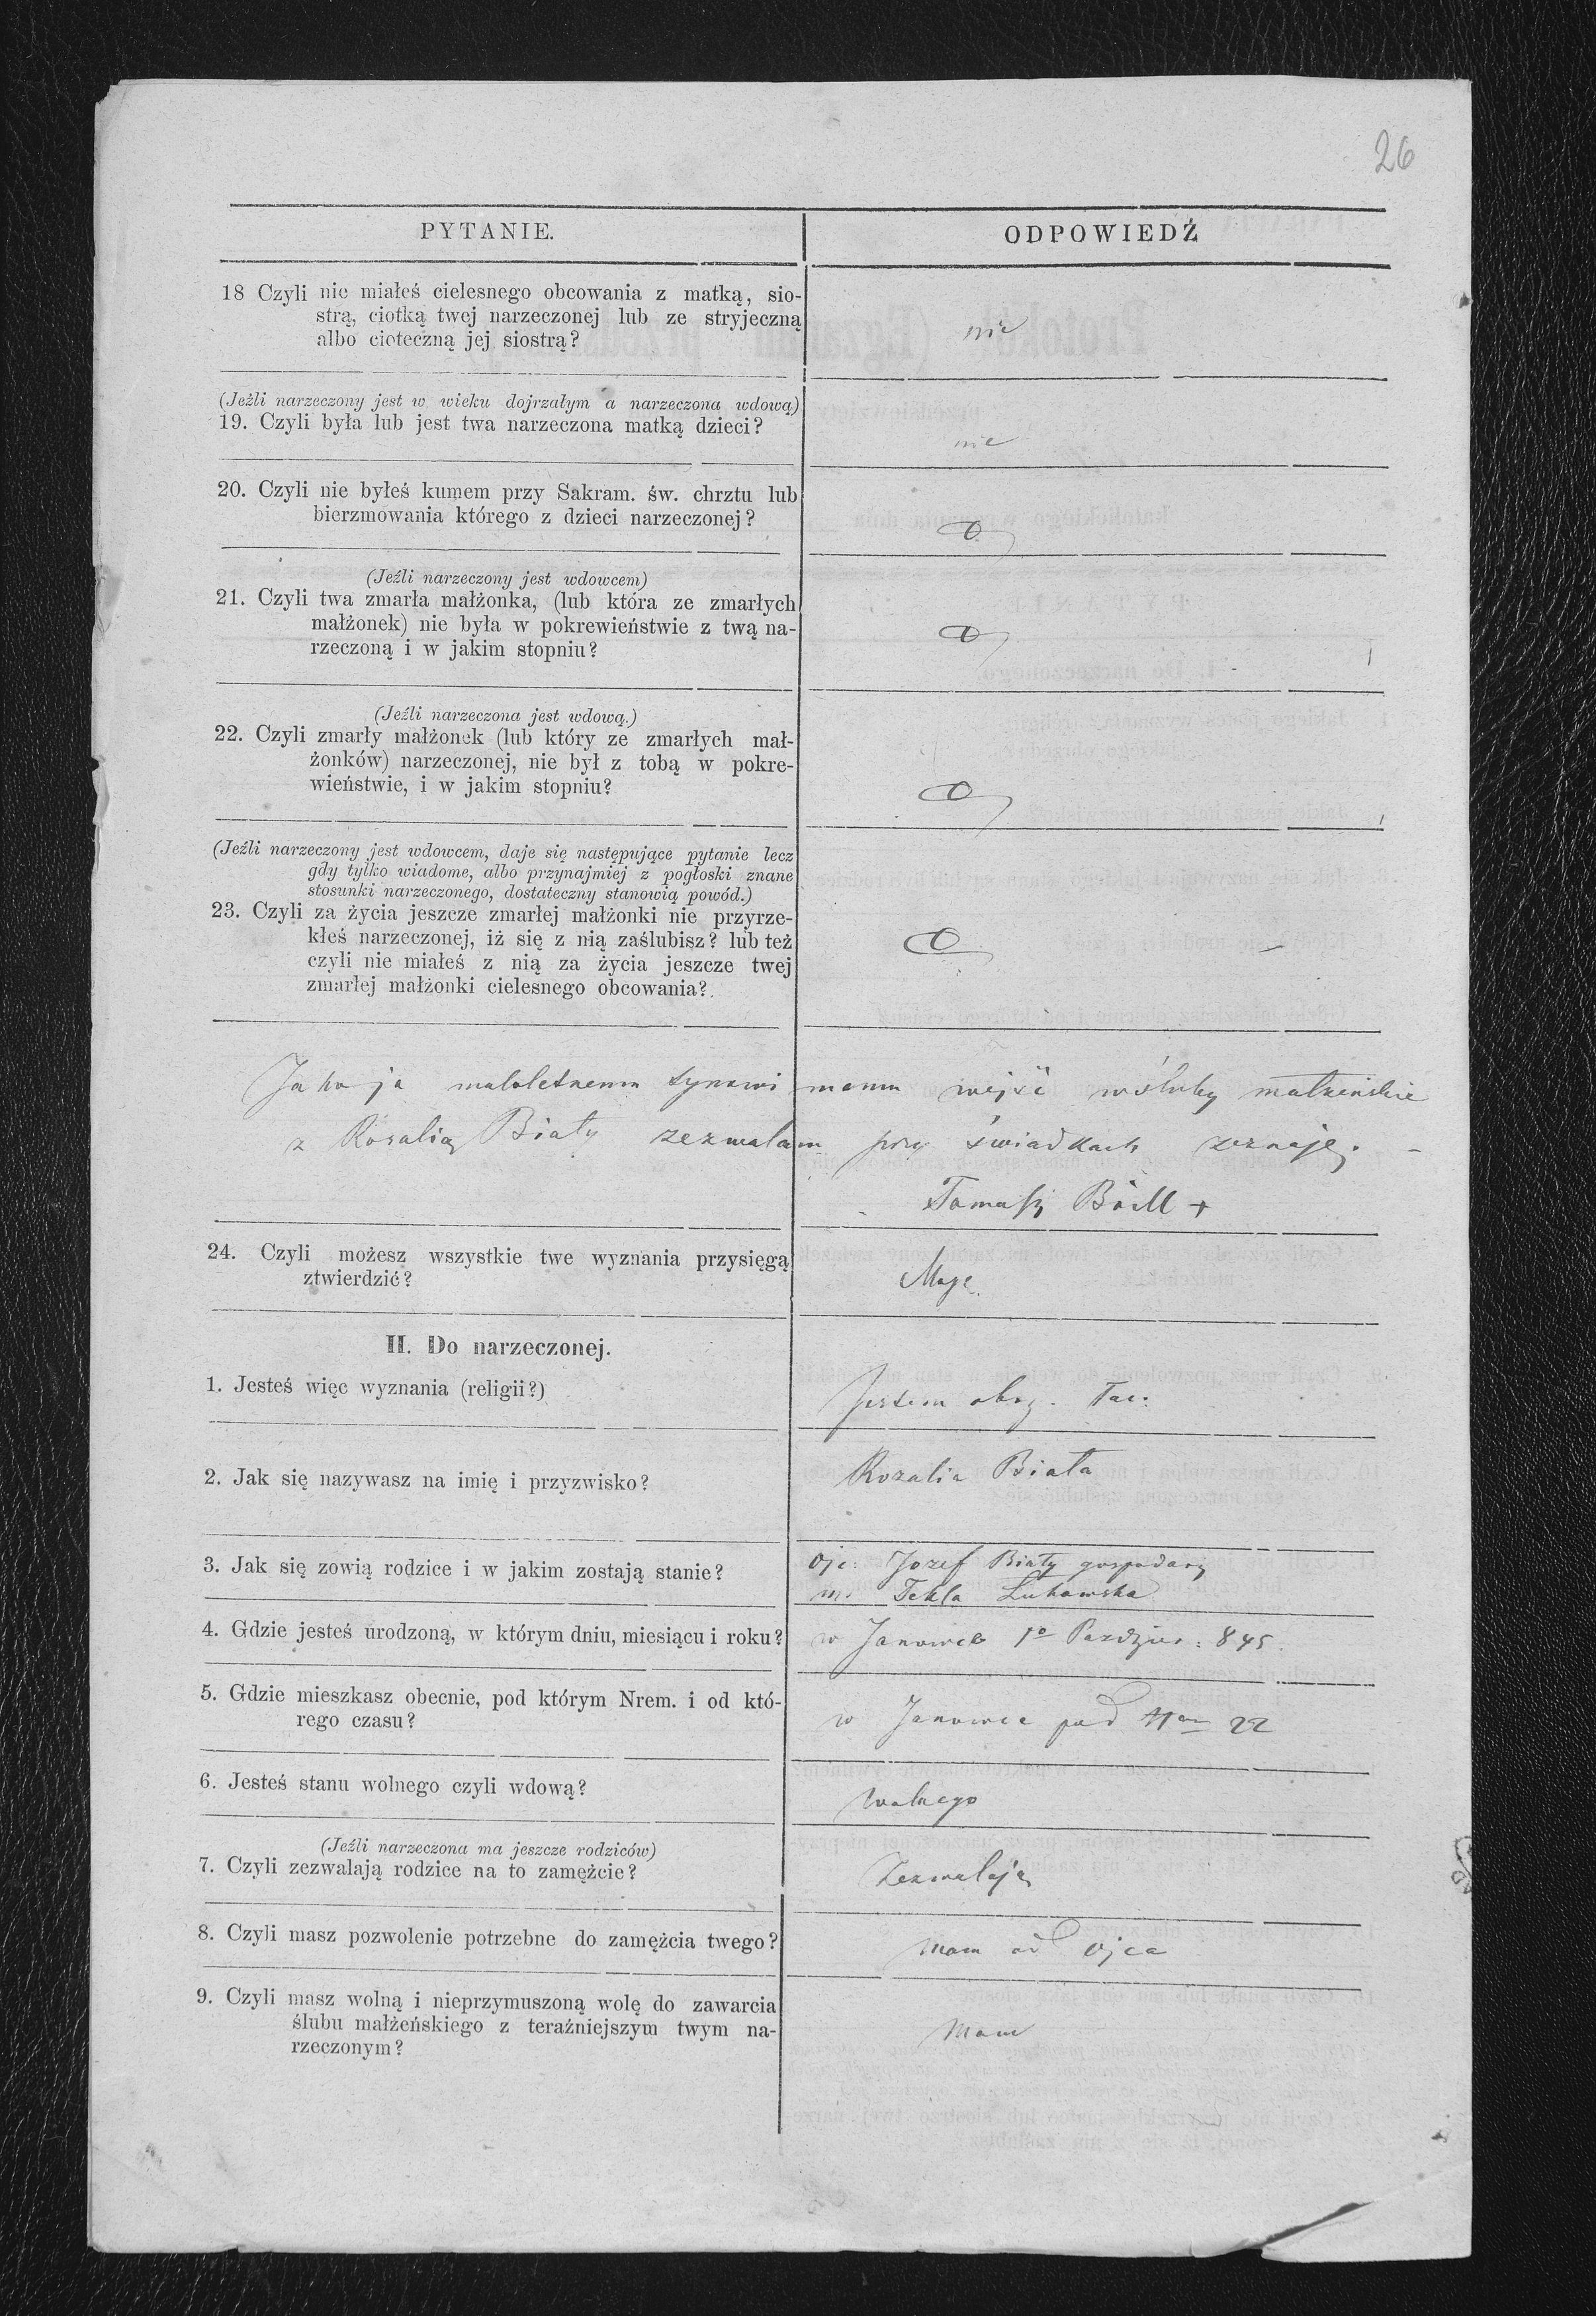 26
PYTANIE.
ODPOWIEDŹ
18 Czyli nie miałeś cielesnego obcowania z matką, sio-
strą, ciotką twej narzeczonej lub ze stryjeczną
albo cioteczną jej siostrą?
nie
(Jeźli narzeczony jest w wieku dojrzałym a narzeczona wdową)
19. Czyli była lub jest twa narzeczona matką dzieci?
nie
20. Czyli nie byłeś kumem przy Sakram. św. chrztu lub
bierzmowania którego z dzieci narzeczonej?
0
(Jeźli narzeczony jest wdowcem)
21. Czyli twa zmarła małżonka, (lub która ze zmarłych
małżonek) nie była w pokrewieństwie z twą na-
rzeczoną i w jakim stopniu?
0
(Jeźli narzeczona jest wdową.)
22. Czyli zmarły małżonek (lub który ze zmarłych mał-
żonków) narzeczonej, nie był z tobą w pokre-
wieństwie, i w jakim stopniu?
0
(Jeźli narzeczony jest wdowcem, daje się następujące pytanie lecz
gdy tylko wiadome, albo przynajmiej z pogłoski znane
stosunki narzeczonego, dostateczny stanowią powód.)
23. Czyli za życia jeszcze zmarłej małżonki nie przyrze-
kłeś narzeczonej, iż się z nią zaślubisz? lub też
czyli nie miałeś z nią za życia jeszcze twej
zmarłej małżonki cielesnego obcowania?
0
Jako ja małoletnemu synowi memu wejść w śluby małżeńskie
z Rosalią Biały zezwalam przy świadkach zeznaję. -
Tomasz +
24. Czyli możesz wszystkie twe wyznania przysięgą
ztwierdzić?
Mogę.
II. Do narzeczonej.
1. Jesteś więc wyznania (religii?)
Jestem obrz. łac:
2. Jak się nazywasz na imię i przyzwisko?
Rozalia Biała
3. Jak się zowią rodzice i w jakim zostają stanie?
Ojc: Jozef Biały gospodarz
m: Tekla Lukawska
4. Gdzie jesteś urodzoną, w którym dniu, miesiącu i roku?
w Janowce 1º Pazdzier: 845.
5. Gdzie mieszkasz obecnie, pod którym Nrem. i od któ-
rego czasu?
w Janowce pod Nem 22
6. Jesteś stanu wolnego czyli wdową?
wolnego
(Jeźli narzeczona ma jeszcze rodziców)
7. Czyli zezwalają rodzice na to zamężcie?
Zezwalają
8. Czyli masz pozwolenie potrzebne do zamężcia twego?
mam od ojca
9. Czyli masz wolną i nieprzymuszoną wolę do zawarcia
ślubu małżeńskiego z teraźniejszym twym na-
rzeczonym?
Mam